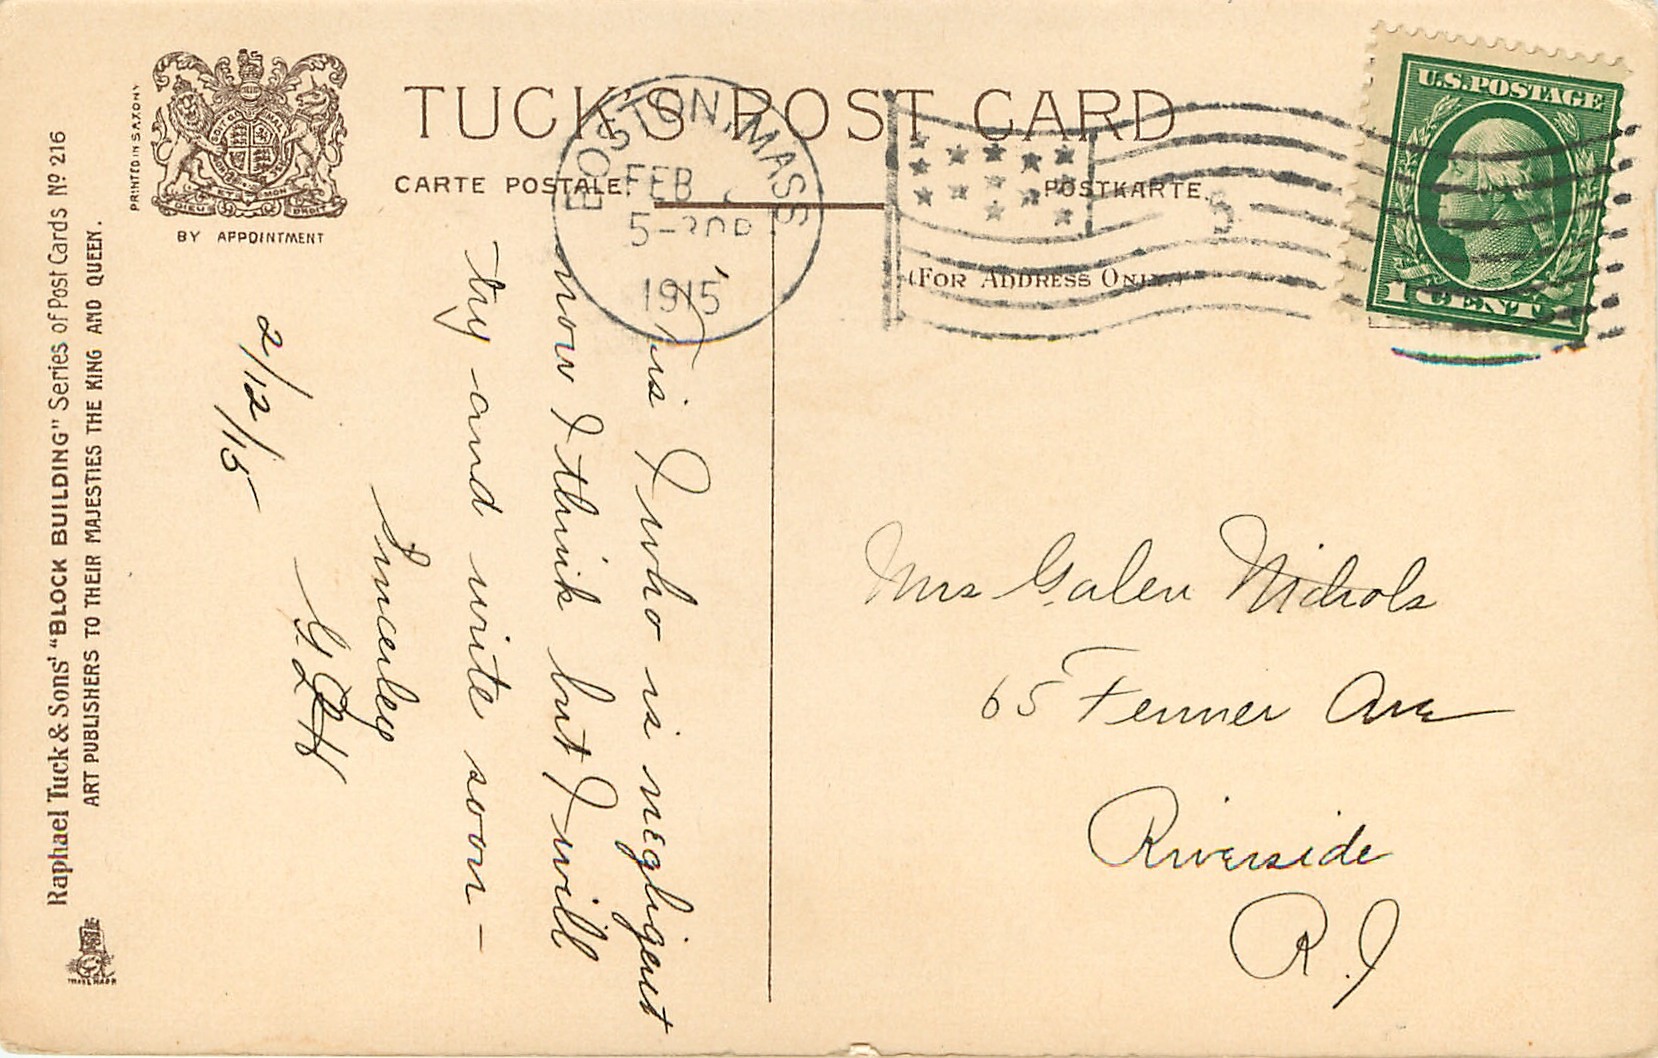 TUCK'S POST CARD
CARTE POSTALE.
POSTKARTE.
(FOR ADDRESS ONLY.)
PRINTED IN SAXONY
BY APPOINTMENT
DIEU ET MON DROIT
Raphael Tuck & Sons' "BLOCK BUILDING" Series of Post Cards No 216
ART PUBLISHERS TO THEIR MAJESTIES THE KING AND QUEEN.
TRADE MARK
BOSTON, MASS
FEB
5-30P
1915
5
U.S.POSTAGE
1 CENT 1
'Tis I who is negligent
now I think but I will
try and write soon -
Sincerley
G.L.H
2/12/15
Mrs Galen Nichols
65 Fenner Ave
Riverside
R.I